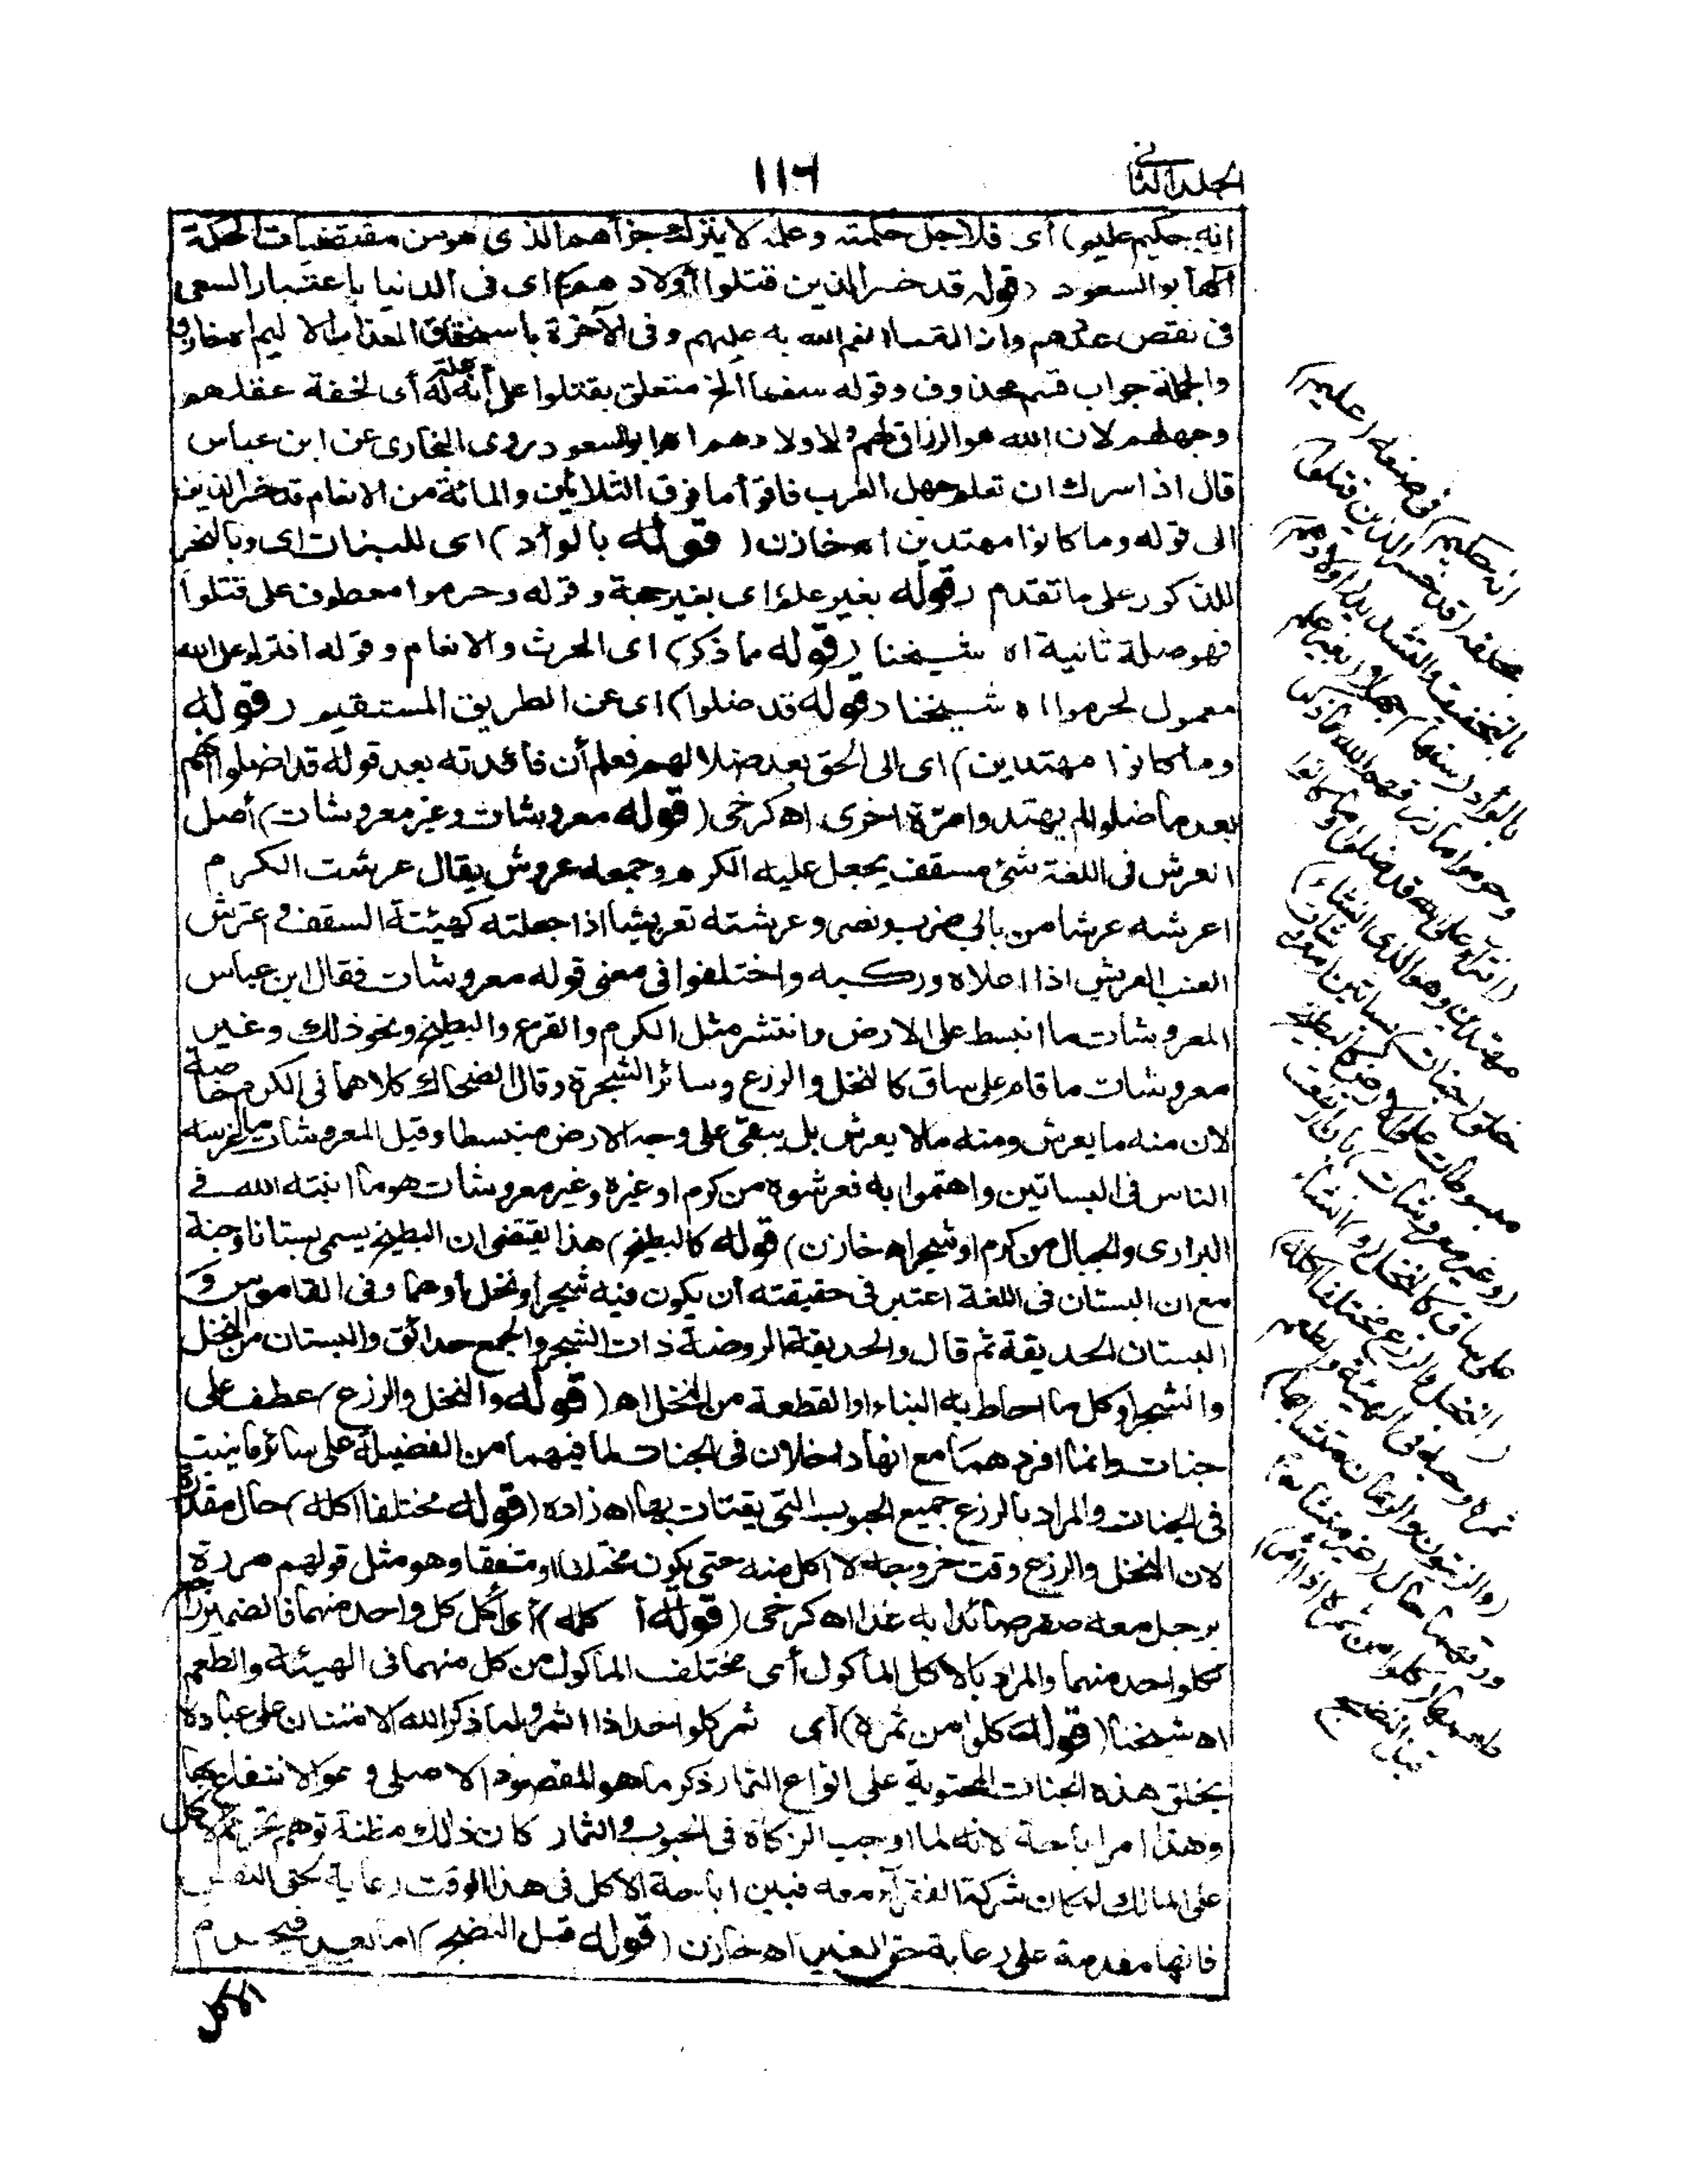 الجلد الثانی
١١٦
انه حكيم عليم) أى فلاجل حكمته وعلمه لا يترك جزأهم الذى هو من مقتضيات الحكمة
اھ أبو السعود (قوله قد خسر الذين قتلوا أولادهم) اى فى الدنيا باعتبار السعى
فى نقص عددهم وازالة ما انعم الله به عليهم وفى الآخرة باستحقاق العذاب الاليم اھ خازن
والجملة جواب قسم محذوف وقوله سفها الخ متعلق بقتلوا على أنه علة له أى لخفة عقلهم
وجهلهم لان الله هو الرزاق لهم ولاولادهم اھ ابو السعود روى البخارى عن ابن عباس
قال اذا سرك ان تعلم جهل العرب فاقرأ ما فوق الثلاثين والمائة من الانعام قد خسر الذين
الى قوله وما كانوا مهتدين اھ خازن (قوله بالوأد) اى للبنات اى وبالنحر
للذكور على ما تقدم (قوله بغير علم) اى بغير حجة وقوله وحرموا معطوف على قتلوا
فهو صلة ثانية اه شيخنا (قوله مما ذكر) اى الحرث والانعام وقوله افتراء على الله
معمول لحرموا اه شيخنا (قوله قد ضلوا) اى عن الطريق المستقيم (قوله
وما كانوا مهتدين) اى الى الحق بعد ضلالهم فعلم أن فائدته بعد قوله قد ضلوا انهم
بعد ما ضلوا لم يهتدوا مرة اخرى اه كرخى (قوله معروشات وغير معروشات) أصل
العرش فى اللغة شئ مسقف يجعل عليه الكرم وجمعه عروش يقال عرشت الكرم
اعرشه عرشا من بابى ضرب ونصر وعرشته تعريشا اذا جعلته كهيئة السقف واعترش
العنب العريش اذا اعلاه وركبه واختلفوا فى معنى قوله معروشات فقال ابن عباس
المعروشات ما انبسط على الارض وانتشر مثل الكرم والقرع والبطيخ ونحو ذلك وغير
معروشات ما قام على ساق كالنخل والزرع وسائر الشجرة وقال الضحاك كلاهما فى الكرم خاصة
لان منه ما يعرش ومنه ما لا يعرش بل يبقى على وجه الارض منبسطا وقيل المعروشات ما غرسه
الناس فى البساتين واهتموا به فعرشوه من كرم او غيره وغير معروشات هو ما انبته الله فى
البرارى والجبال من كرم او شجر اه خازن) قوله كالبطيخ) هذا يقتضى ان البطيخ يسمى بستانا وجنة
مع ان البستان فى اللغة اعتبر فى حقيقته أن يكون فيه شجر أو نخل أو هما وفى القاموس و
البستان الحديقة ثم قال والحديقة الروضة ذات الشجر والجمع حدائق والبستان من النخل
والشجر او كل ما احاط به البناء او القطعة من النخل اه (قوله والنخل والزرع) عطف على
جنات وانما افردهما مع انهما داخلان فى الجنات لما فيهما من الفضيلة على سائر ما ينبت
فى الجنات والمراد بالزرع جميع الحبوب التى يقتات بها اه زاده (قوله مختلفا أكله) حال مقدرة
لان النخل والزرع وقت خروجه لا اكل منه حتى يكون مختلفا او متفقا وهو مثل قولهم مررت
برجل معه صقر صائدا به غدا اه كرخى (قوله أكله) أى أكل كل واحد منهما فالضمير راجع
لكل واحد منهما والمراد بالاكل المأكول أى مختلف المأكول من كل منهما فى الهيئة والطعم
اه شيخنا (قوله كلوا من ثمره) أى ثمر كل واحد اذا اثمر ولما ذكر الله الامتنان على عباده
بخلق هذه الجنات المحتوية على انواع الثمار ذكر ما هو المقصود الاصلى وهو الانتفاع بها
وهذا امر اباحة لانه لما اوجب الزكاة فى الحبوب والثمار كان ذلك مظنة توهم تحريم الاكل
على المالك لمكان شركة الفقراء معه فبين اباحة الاكل فى هذا الوقت رعاية لحق النفس
فانها مقدمة على رعاية حق الغير اه خازن (قوله قبل النضج) اما بعده فيحرم
الاكل
انه حكيم) فى صنعه (عليم)
بخلقه (قد خسر الذين قتلوا)
بالتخفيف والتشديد (اولادهم)
بالوأد (سفها) جهلا (بغير علم
وحرموا ما رزقهم الله) مما ذكر
(افتراء على الله قد ضلوا وما كانوا
مهتدين وهو الذى انشأ)
خلق (جنات) بساتين (معروشات)
مبسوطات على الارض كالبطيخ
(وغير معروشات) بان ارتفعت
على ساق كالنخل (و) انشأ
(النخل والزرع مختلفا اكله)
ثمره وحبه فى الهيئة والطعم
(والزيتون والرمان متشابها)
ورقهما حال (وغير متشابه)
طعمهما (كلوا من ثمره اذا اثمر)
قبل النضج